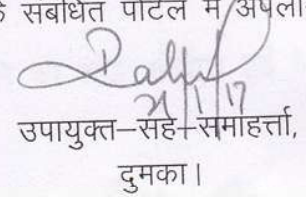 संबंधित पोर्टल में अपलो
21/1/17
उपायुक्त–सह–समाहर्त्ता,
दुमका।